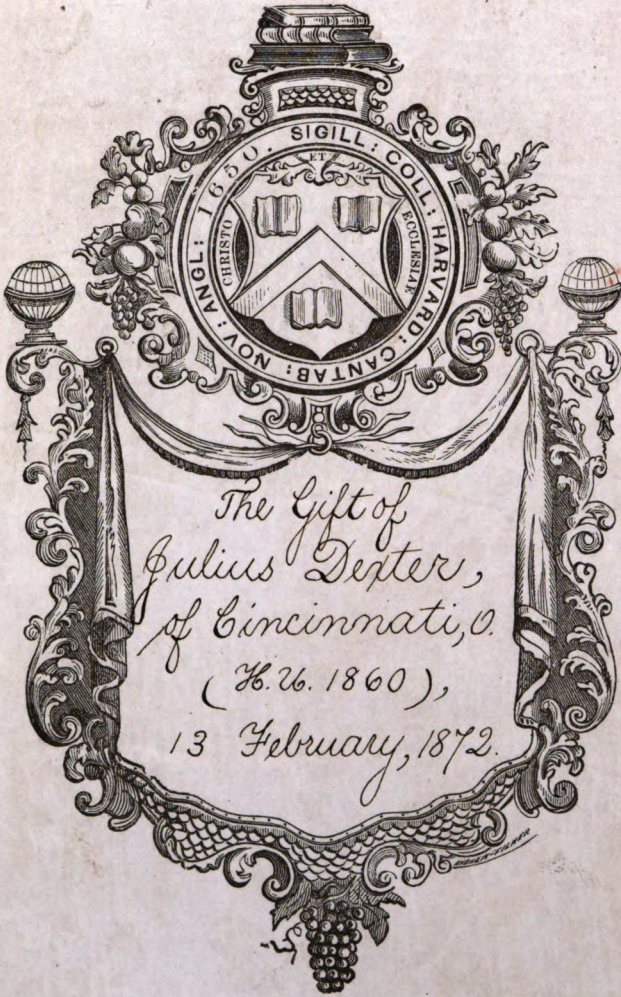 SIGILL: COLL: HARVARD: CANTAB: NOV: ANGL: 1650.
ET
CHRISTO
ECCLESIAE
The Gift of
Julius Dexter,
of Cincinnati, O.
(H. U. 1860),
13 February, 1872.